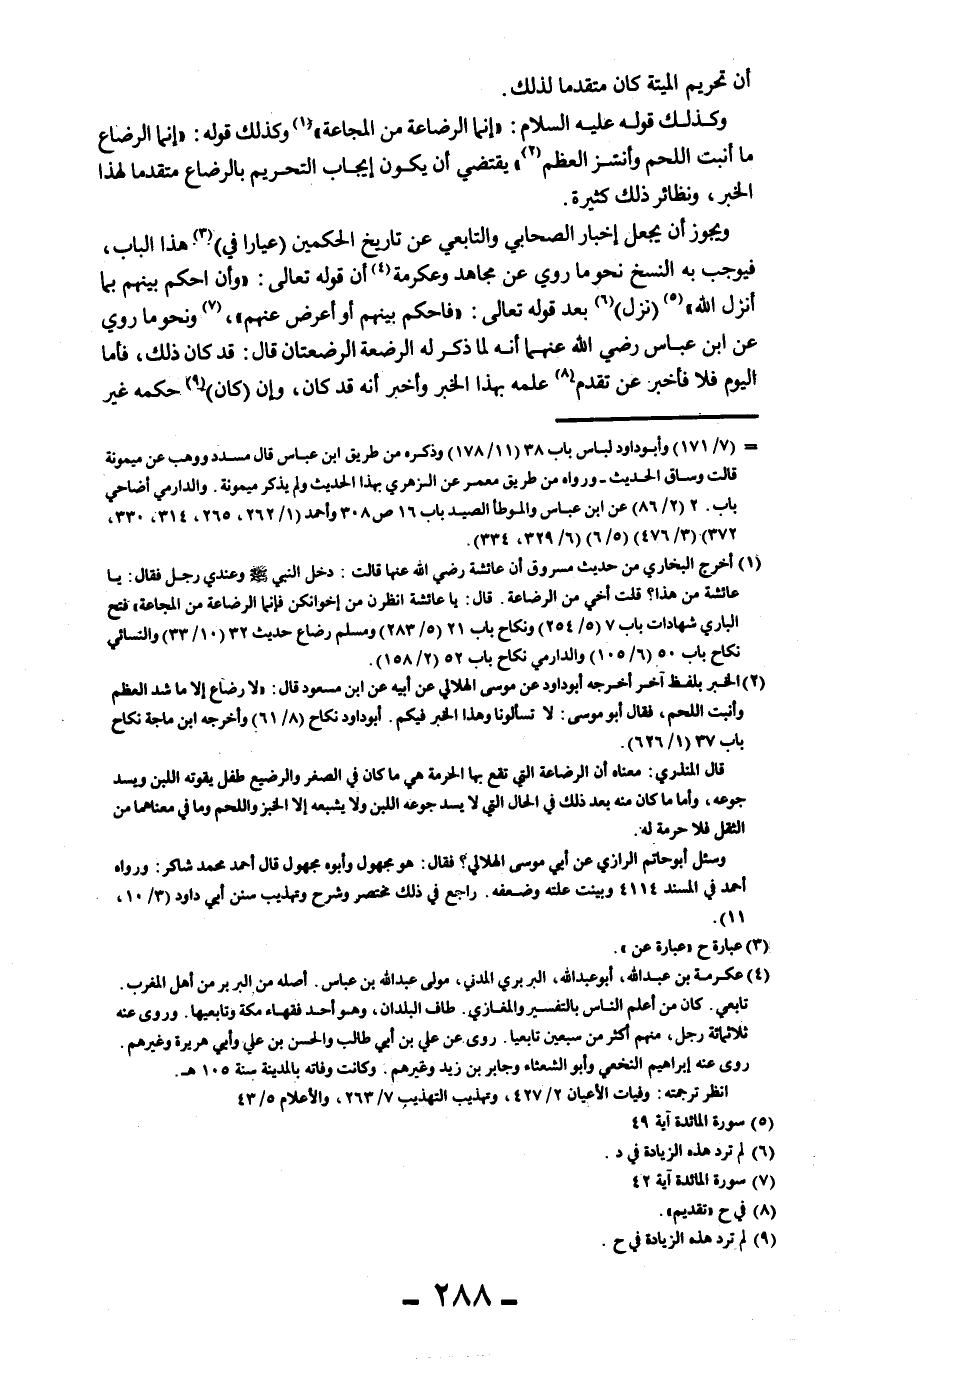 أن تحريم الميتة كان متقدما لذلك.
وكذلك قوله عليه السلام: «إنما الرضاعة من المجاعة»(١) وكذلك قوله: «إنما الرضاع
ما أنبت اللحم وأنشز العظم(٢)» يقتضي أن يكون إيجاب التحريم بالرضاع متقدما لهذا
الخبر، ونظائر ذلك كثيرة.
ويجوز أن يجعل إخبار الصحابي والتابعي عن تاريخ الحكمين (عيارا في)(٣) هذا الباب،
فيوجب به النسخ نحو ما روي عن مجاهد وعكرمة(٤) أن قوله تعالى: «وأن احكم بينهم بما
أنزل الله»(٥) (نزل)(٦) بعد قوله تعالى: «فاحكم بينهم أو أعرض عنهم»،(٧) ونحو ما روي
عن ابن عباس رضي الله عنهما أنه لما ذكر له الرضعة الرضعتان قال: قد كان ذلك، فأما
اليوم فلا فأخبر عن تقدم(٨) علمه بهذا الخبر وأخبر أنه قد كان، وإن (كان)(٩) حكمه غير
= (٧/ ١٧١) وأبوداود لباس باب ٣٨ (١١/ ١٧٨) وذكره من طريق ابن عباس قال مسدد ووهب عن ميمونة
قالت وساق الحديث ـ ورواه من طريق معمر عن الزهري بهذا الحديث ولم يذكر ميمونة. والدارمي أضاحي
باب. ٢ (٢/ ٨٦) عن ابن عباس والموطأ الصيد باب ١٦ ص ٣٠٨ وأحمد (١/ ٢٦٢، ٢٦٥، ٣١٤، ٣٣٠،
٣٧٢) (٣/ ٤٧٦) (٥/ ٦) (٦/ ٣٢٩، ٣٣٤).
(١) أخرج البخاري من حديث مسروق أن عائشة رضي الله عنها قالت: دخل النبي ﷺ وعندي رجل فقال: يا
عائشة من هذا؟ قلت أخي من الرضاعة. قال: يا عائشة انظرن من إخوانكن فإنما الرضاعة من المجاعة» فتح
الباري شهادات باب ٧ (٥/ ٢٥٤) ونكاح باب ٢١ (٥/ ٢٨٣) ومسلم رضاع حديث ٣٢ (١٠/ ٣٣) والنسائي
نكاح باب ٥٠ (٦/ ١٠٥) والدارمي نكاح باب ٥٢ (٢/ ١٥٨).
(٢) الخبر بلفظ آخر أخرجه أبوداود عن موسى الهلالي عن أبيه عن ابن مسعود قال: «لا رضاع إلا ما شد العظم
وأنبت اللحم، فقال أبو موسى: لا تسألونا وهذا الخبر فيكم. أبوداود نكاح (٨/ ٦١) وأخرجه ابن ماجة نكاح
باب ٣٧ (١/ ٦٢٦).
قال المنذري: معناه أن الرضاعة التي تقع بها الحرمة هي ما كان في الصغر والرضيع طفل يقوته اللبن ويسد
جوعه، وأما ما كان منه بعد ذلك في الحال التي لا يسد جوعه اللبن ولا يشبعه إلا الخبز واللحم وما في معناهما من
الثقل فلا حرمة له.
وسئل أبوحاتم الرازي عن أبي موسى الهلالي؟ فقال: هو مجهول وأبوه مجهول قال أحمد محمد شاكر: ورواه
أحمد في المسند ٤١١٤ وبينت علته وضعفه. راجع في ذلك مختصر وشرح وتهذيب سنن أبي داود (٣/ ١٠،
١١).
(٣) عبارة ح «عبارة عن».
(٤) عكرمة بن عبدالله، أبوعبدالله، البربري المدني، مولى عبدالله بن عباس. أصله من البربر من أهل المغرب.
تابعي. كان من أعلم الناس بالتفسير والمغازي. طاف البلدان، وهو أحد فقهاء مكة وتابعيها. وروى عنه
ثلاثمائة رجل، منهم أكثر من سبعين تابعيا. روى عن علي بن أبي طالب والحسن بن علي وأبي هريرة وغيرهم.
روى عنه إبراهيم النخعي وأبو الشعثاء وجابر بن زيد وغيرهم. وكانت وفاته بالمدينة سنة ١٠٥ هـ.
انظر ترجمته: وفيات الأعيان ٢/ ٤٢٧، وتهذيب التهذيب ٧/ ٢٦٣، والأعلام ٥/ ٤٣
(٥) سورة المائدة آية ٤٩
(٦) لم ترد هذه الزيادة في د.
(٧) سورة المائدة آية ٤٢
(٨) في ح «تقديم».
(٩) لم ترد هذه الزيادة في ح.
ـ ٢٨٨ ـ